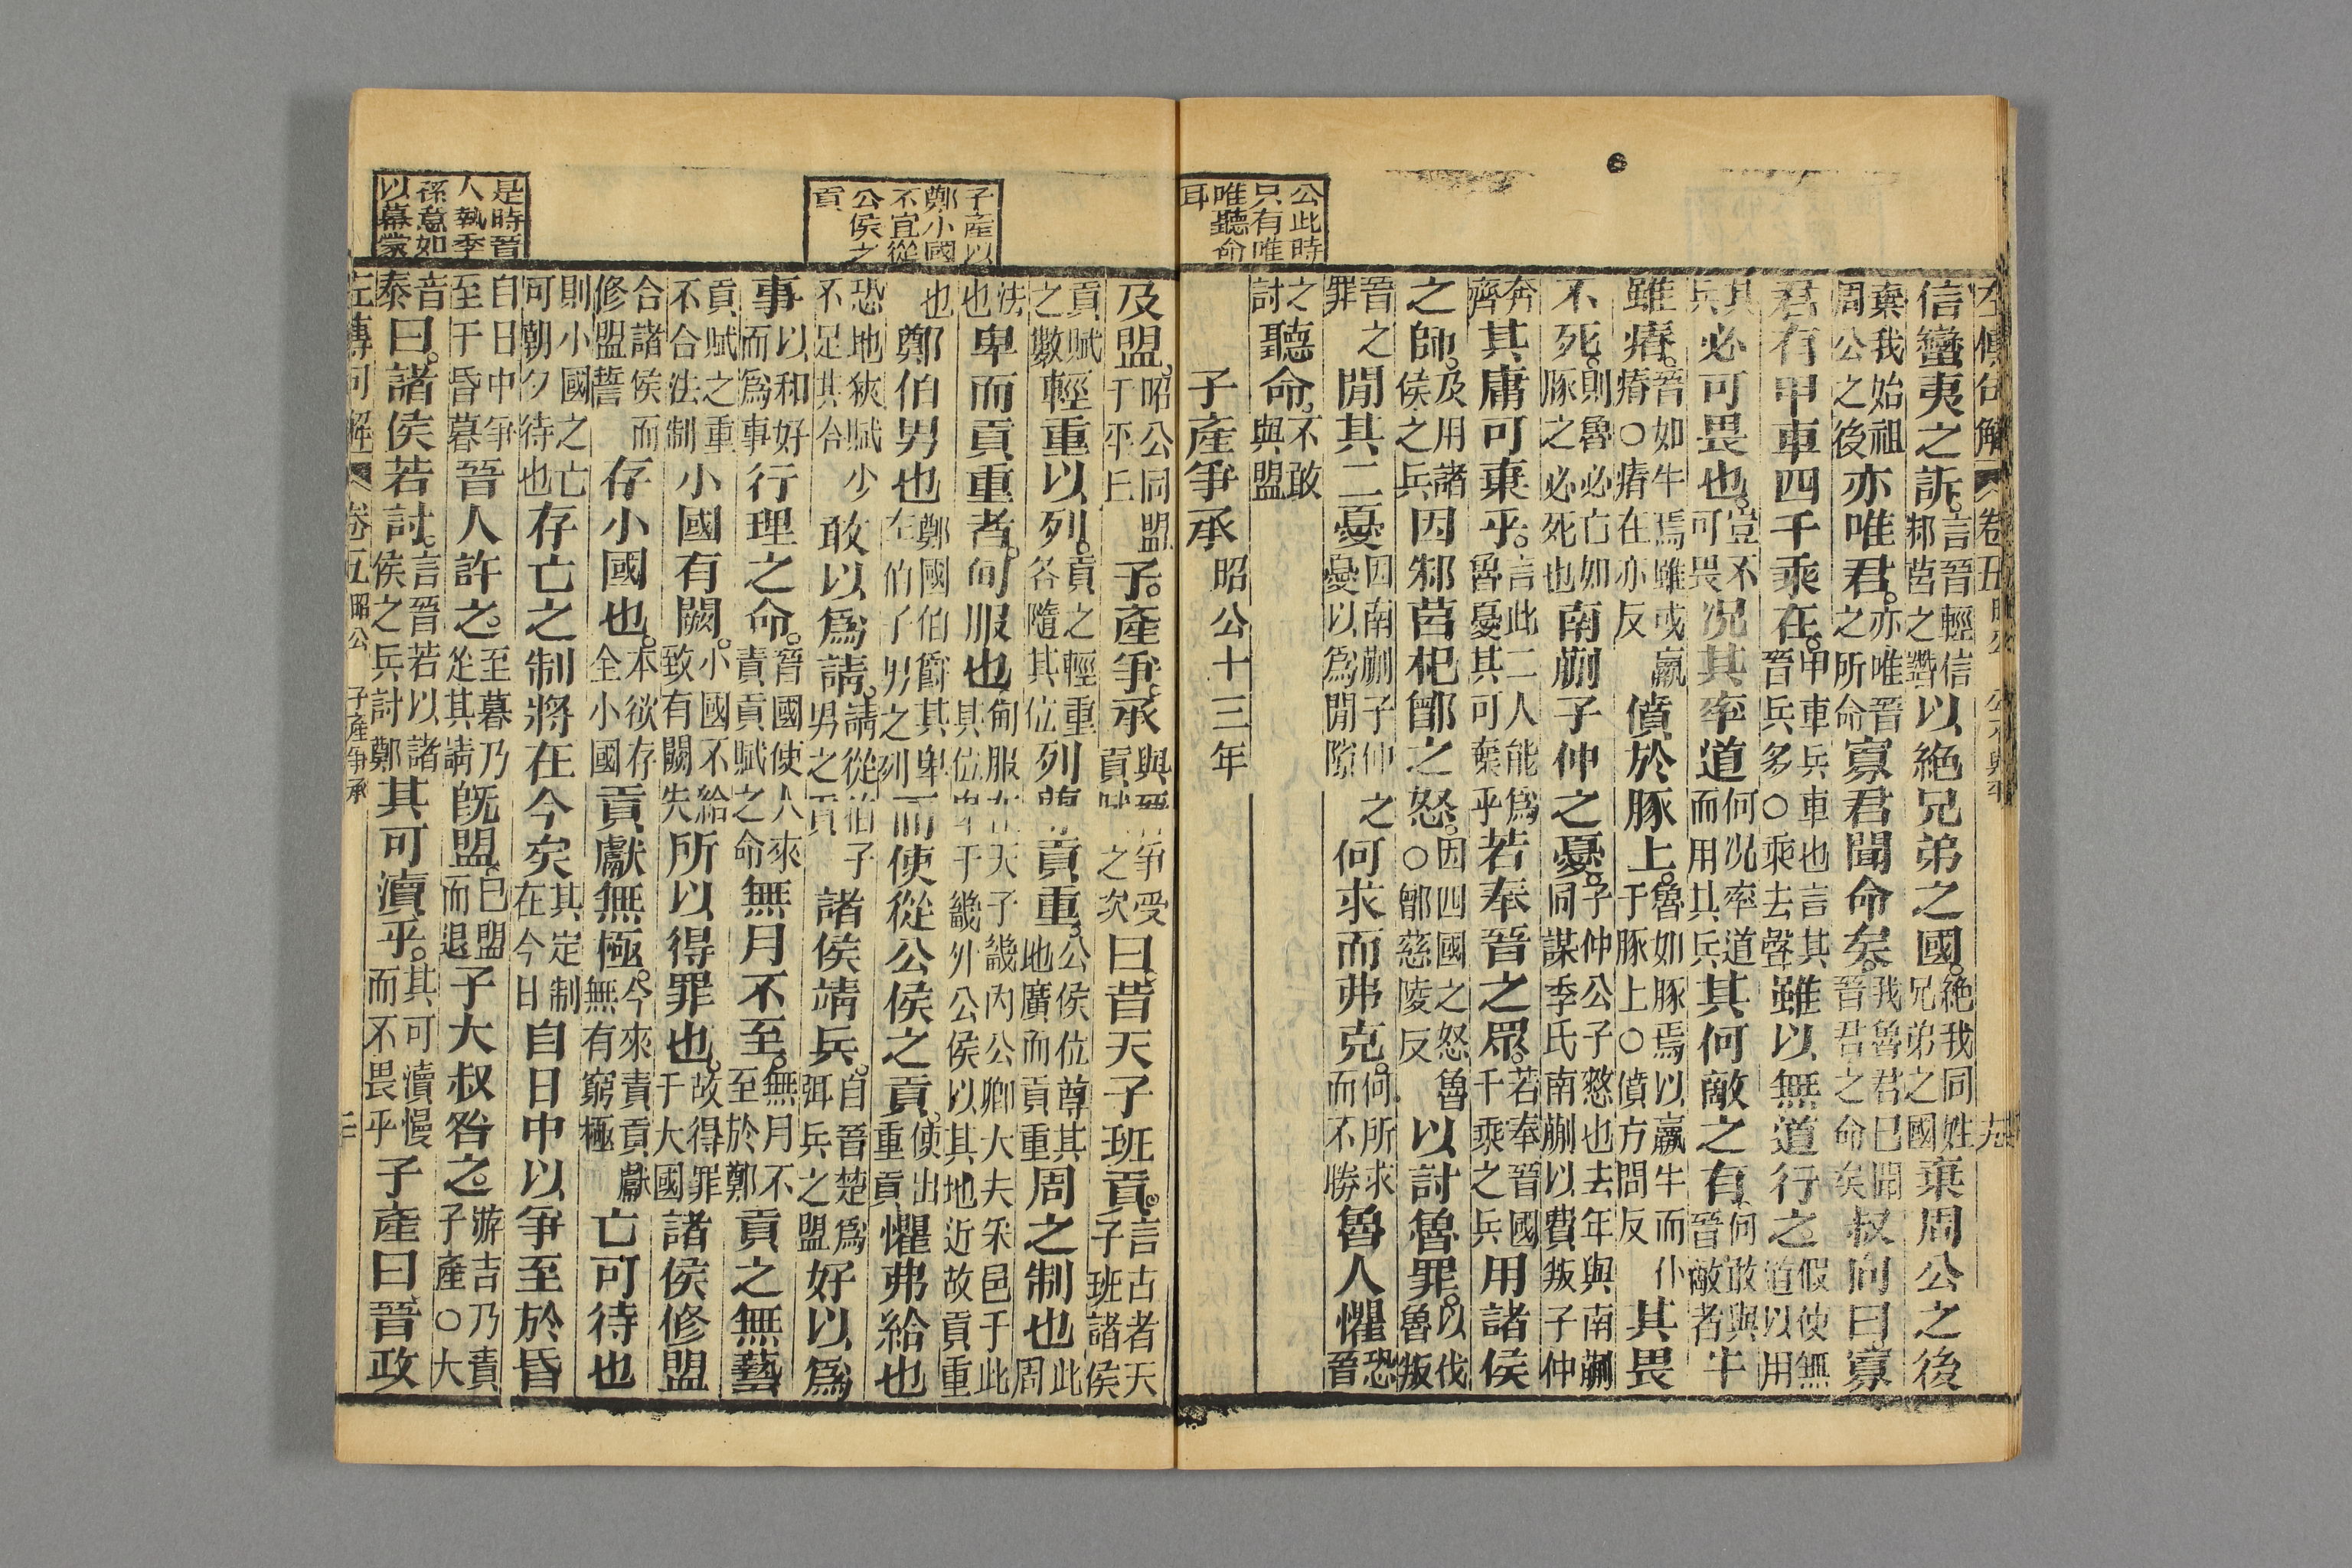 公此時
只有唯
唯聽命
耳
信蠻夷之訴言晉輕信邾莒之讒以絕兄弟之國絕我同姓兄弟之國棄周公之後
棄我始祖周公之後亦唯君亦唯晉之所命寡君聞命矣我魯君已聞晉君之命矣叔向曰寡
君有甲車四千乘在甲車兵車也言其晉兵多○乘去聲雖以無道行之假使無道以用
其兵必可畏也豈不可畏况其率道何况率道而用其兵其何敵之有何敢與晉敵者牛
雖瘠晉如牛焉雖或羸瘠○瘠在亦反僨於豚上魯如豚焉以羸牛而仆于豚上○僨方問反其畏
不死則魯必亡如豚之必死也南蒯子仲之憂子仲公子憖也去年與南蒯同謀季氏南蒯以費叛子仲
奔齊其庸可棄乎言此二人能為魯憂其可棄乎若奉晉之眾若奉晉國千乘之兵用諸侯
之師及用諸侯之兵因邾莒杞鄫之怒因四國之怒魯○鄫慈陵反以討魯罪以伐魯叛
晉之罪閒其二憂因南蒯子仲之憂以為閒隙何求而弗克何所求而不勝魯人懼恐晉
之討聽命不敢與盟
子產爭承 昭公十三年
子產以
鄭小國
不宜從
公侯之
貢
是時晉
人執季
孫意如
以幕蒙
及盟昭公同盟于平丘子產爭承曰昔天子班貢言古者天子班諸侯
貢賦之數輕重以列貢之輕重各隨其位貢重公侯位尊其地廣而貢重周之制也此周
法也卑而貢重者甸服也于畿外公侯以其地近故貢重
也鄭伯男也鄭國伯爵其卑在伯子男之列而使從公侯之貢使出重貢懼弗給也
恐地狹賦少不足其合敢以為請請從伯子男之貢諸侯靖兵自晉楚為弭兵之盟好以為
事以和好而為事行理之命晉國使人來責貢賦之命無月不至無月不至於鄭貢之無藝
貢賦之重不合法制小國有闕小國不給致有闕失所以得罪也故得罪于大國諸侯修盟
合諸侯而修盟誓存小國也本欲存全小國貢獻無極今來責貢獻無有窮極亡可待也
則小國之亡可朝夕待也存亡之制將在今矣其定制在今日自日中以爭至於昏
自日中爭至于昏暮晉人許之至暮乃從其請既盟已盟而退子大叔咎之游吉乃責子產○大
音泰曰諸侯若討言晉若以諸侯之兵討鄭其可瀆乎其可瀆慢而不畏乎子產曰晉政
左傳句解 卷五 昭公 子產爭承